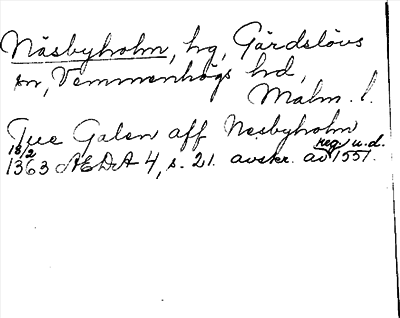 Näsbyholm, hg, Gärdslövs
sn, Vemmenhögs hd,
Malm. l.
Tue Galen aff Nesbyholm
18/2 1363 ÆDA 4, s. 21. avskr. av reg u.d. 1551.